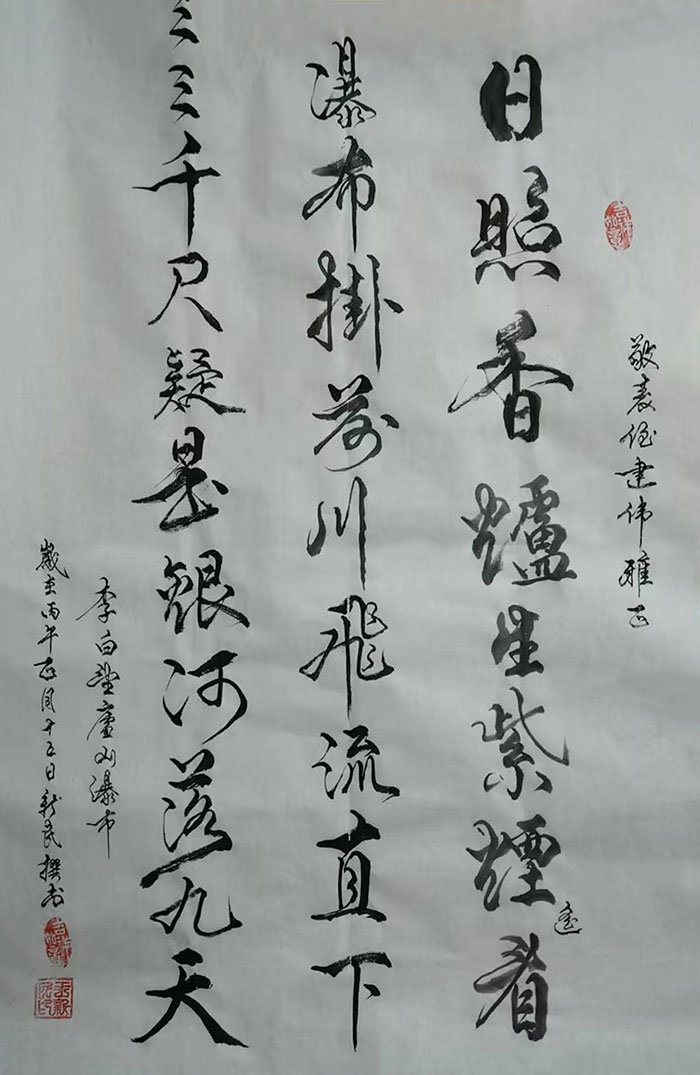 敬表侄建伟雅正
日照香爐生紫煙看
遙
瀑布掛前川飛流直下
三三千尺疑是銀河落九天
李白望廬山瀑布
歲在丙午正月十五日新民撰书